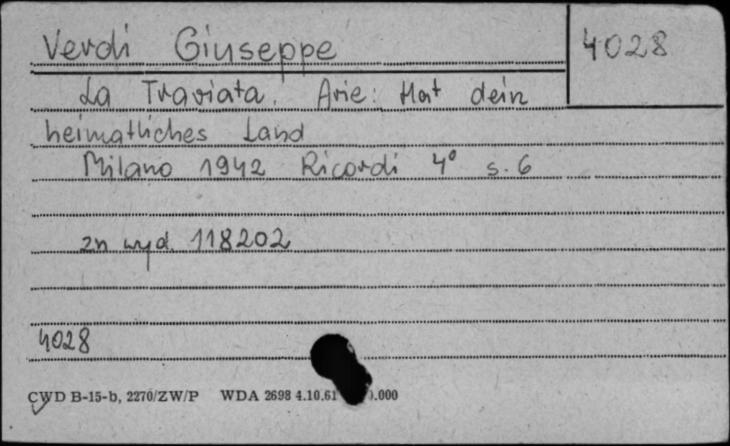 Verdi Giuseppe
4028
La Traviata. Arie: Hat dein
heimatliches Land
Milano 1942 Ricordi 4° s. 6
zn wyd. 118202
4028
CWD B-15-b, 2270/ZW/P WDA 2698 4.10.61 .000